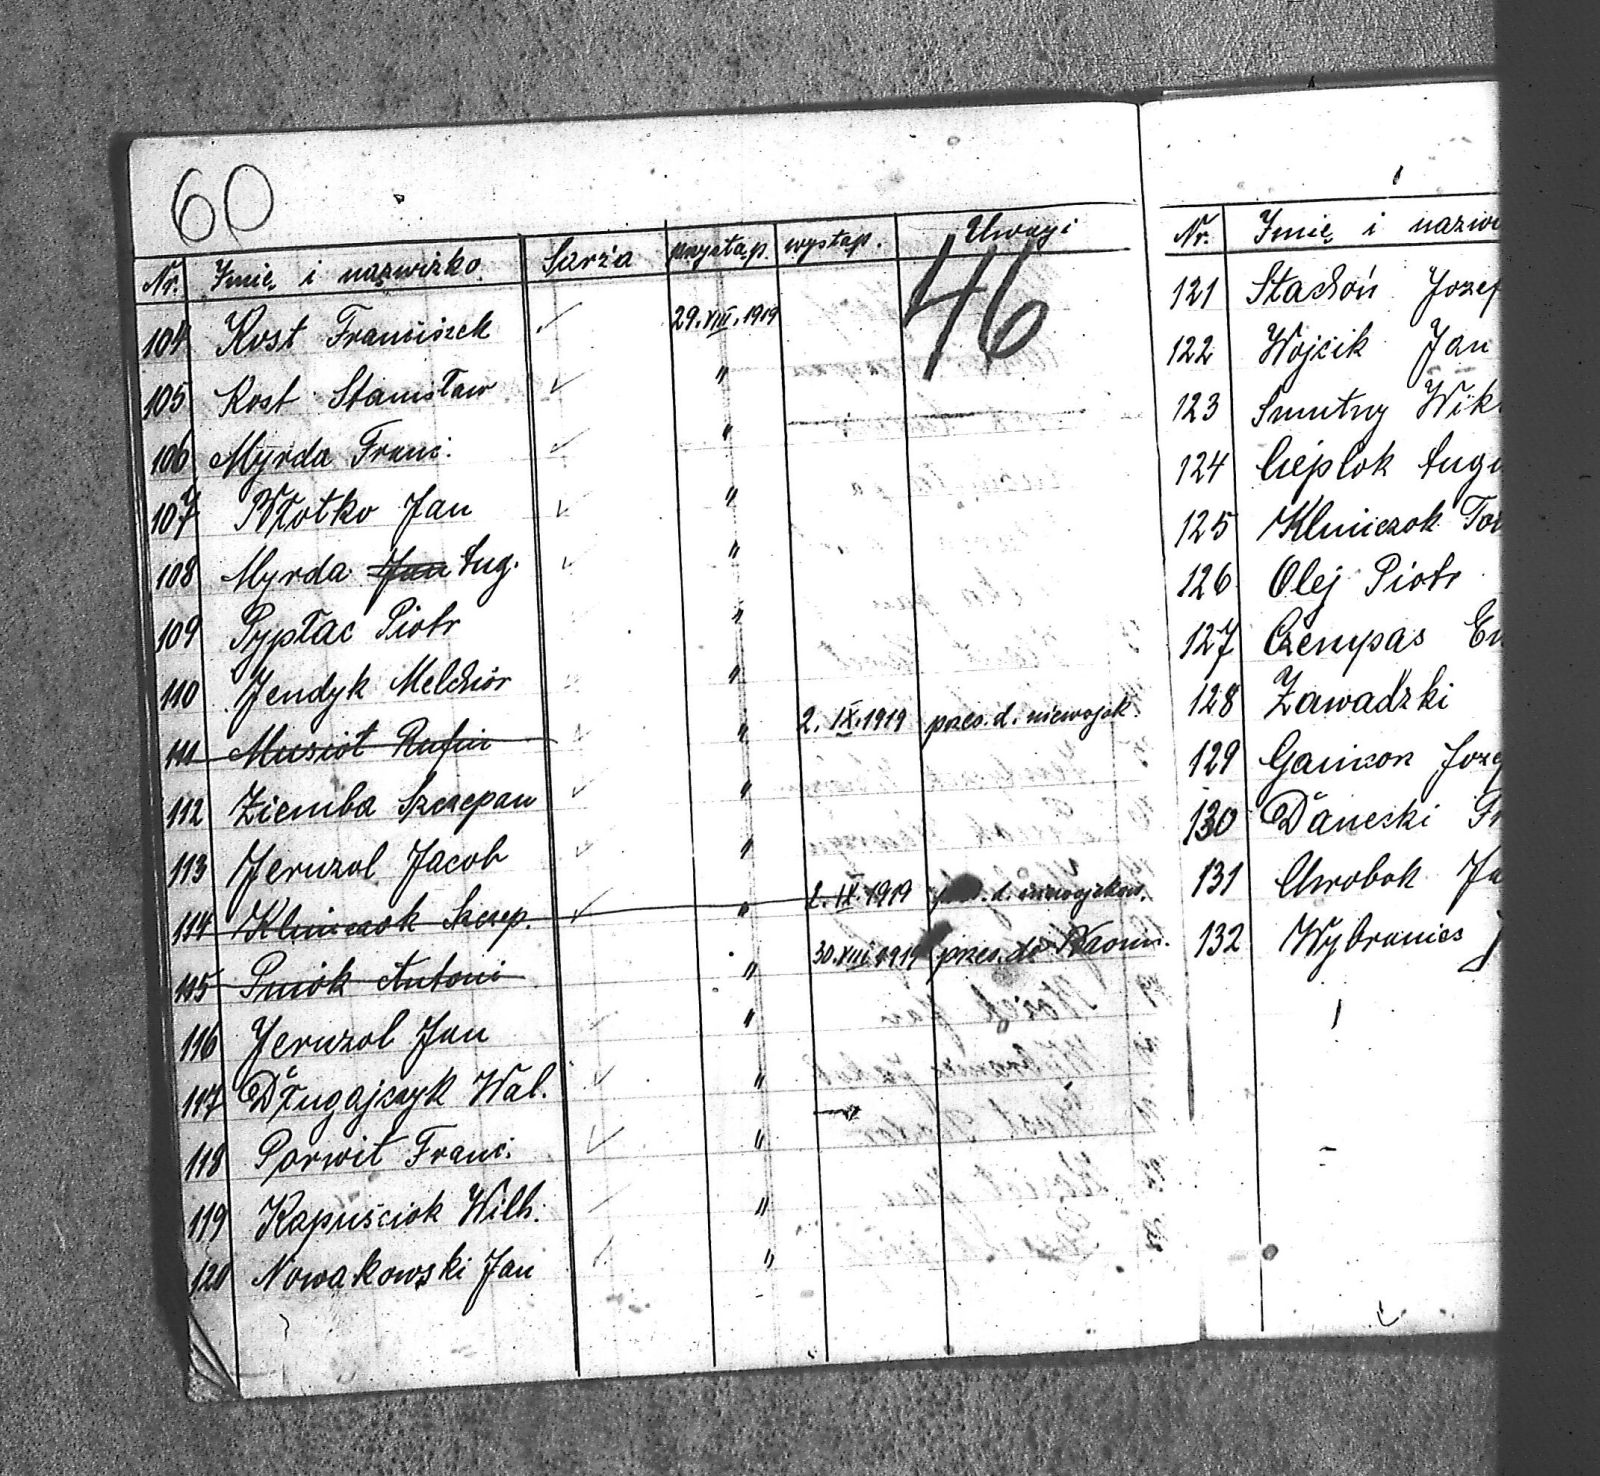 60
46
Nr. Imię i nazwizko. Sarża przystąp. wystąp. Uwagi
104 Kost Franciszek 29.VIII.1919
105 Kost Stanisław "
106 Myrda Franc. "
107 Błotko Jan "
108 Myrda Jan Aug. "
109 Pypłac Piotr "
110 Jendyk Melchior "
111 Musioł Rufin " 2.IX.1919 przes. d. niewojsk.
112 Ziemba Szczepan "
113 Jeruzol Jacob "
114 Klimczok Szczep. " 2.IX.1919 d. niewojskow.
115 Pniok Antoni " 30.VIII.1919 przes. do
116 Jeruzol Jan "
117 Długajczyk Wal. "
118 Porwit Franc. "
119 Kapuściok Wilh. "
120 Nowakowski Jan "
Nr. Imię i nazwi
121 Stachoń Jozef
122 Wojcik Jan
123 Smutny Wik
124 Cieplok Augu
125 Klimczok
126 Olej Piotr
127 Czempas
128 Zawadzki
129 Joze
130
131 Chrobok Ja
132 Wybraniec J